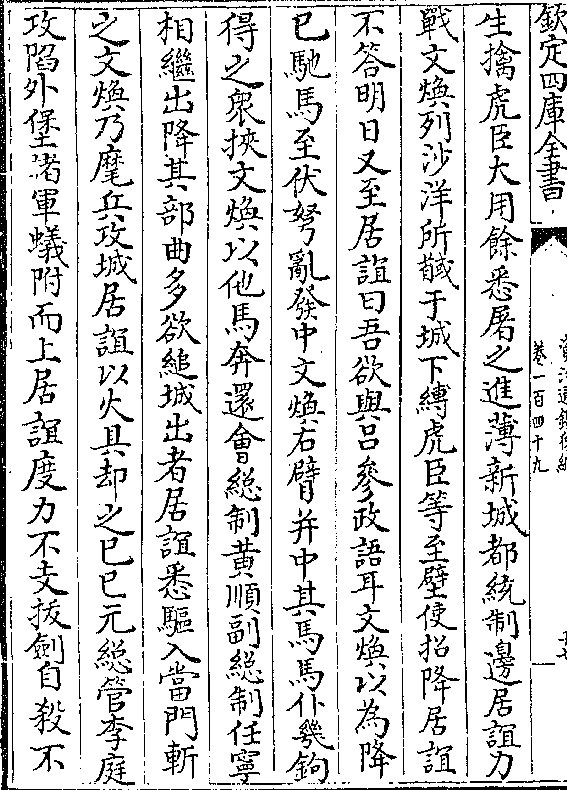 欽定四庫全書
卷一百四十九
生擒虎臣大用餘悉屠之進薄新城都統制邊居誼力
戰文煥列沙洋所馘于城下縛虎臣等至壁使招降居誼
不答明日又至居誼曰吾欲與吕參政語耳文煥以為降
已馳馬至伏弩亂發中文煥右臂并中其馬馬仆幾鉤
得之衆挾文煥以他馬奔還會總制黄順副總制任寧
相繼出降其部曲多欲縋城出者居誼悉驅入當門斬
之文煥乃麾兵攻城居誼以火具却之已巳元總管李庭
攻陷外堡諸軍蟻附而上居誼度力不支拔劍自殺不